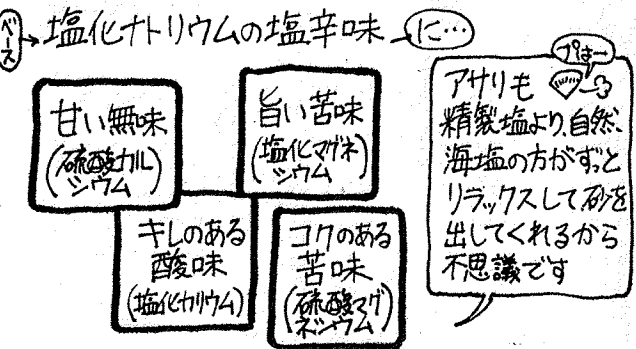 ベース
塩化ナトリウムの塩辛味
に…
甘い無味
(硫酸カル
シウム)
旨い苦味
(塩化マグネ
シウム)
キレのある
酸味
(塩化カリウム)
コクのある
苦味
(硫酸マグ
ネシウム)
プはー
アサリも
精製塩より、自然
海塩の方がずっと
リラックスして砂を
出してくれるから
不思議です